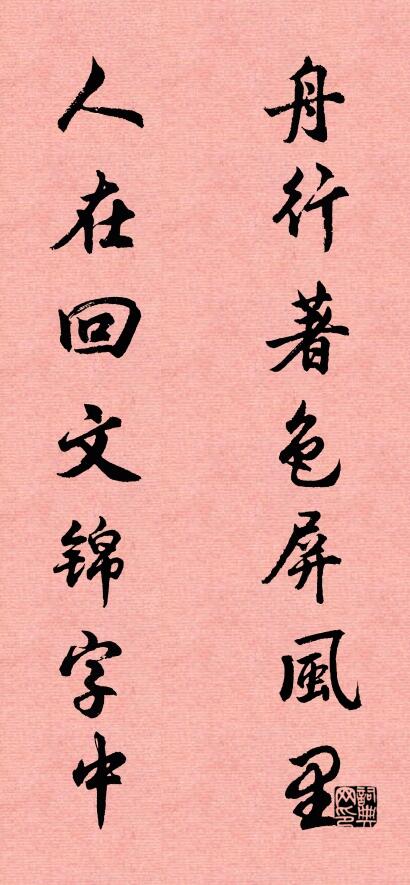 舟行著色屏風里
人在回文锦字中
詞典网印